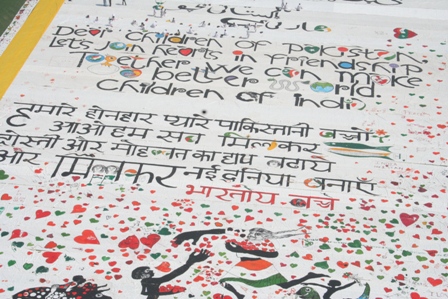 Dear Children of Pakistan
Lets Join hearts in friendship
Together We can make
a better World
Children of India
हमारे होनहार प्यारे पाकिस्तानी बच्चों
आओ हम सब मिलकर
दोस्ती और मोहब्बत का हाथ बढ़ाय
और मिलकर नई दुनिया बनाएँ
भारतीय बच्चे